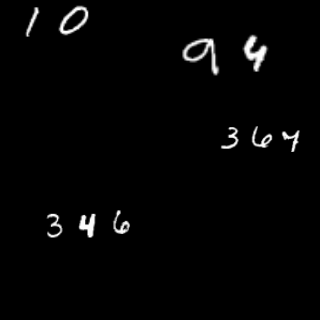 10
94
367
346